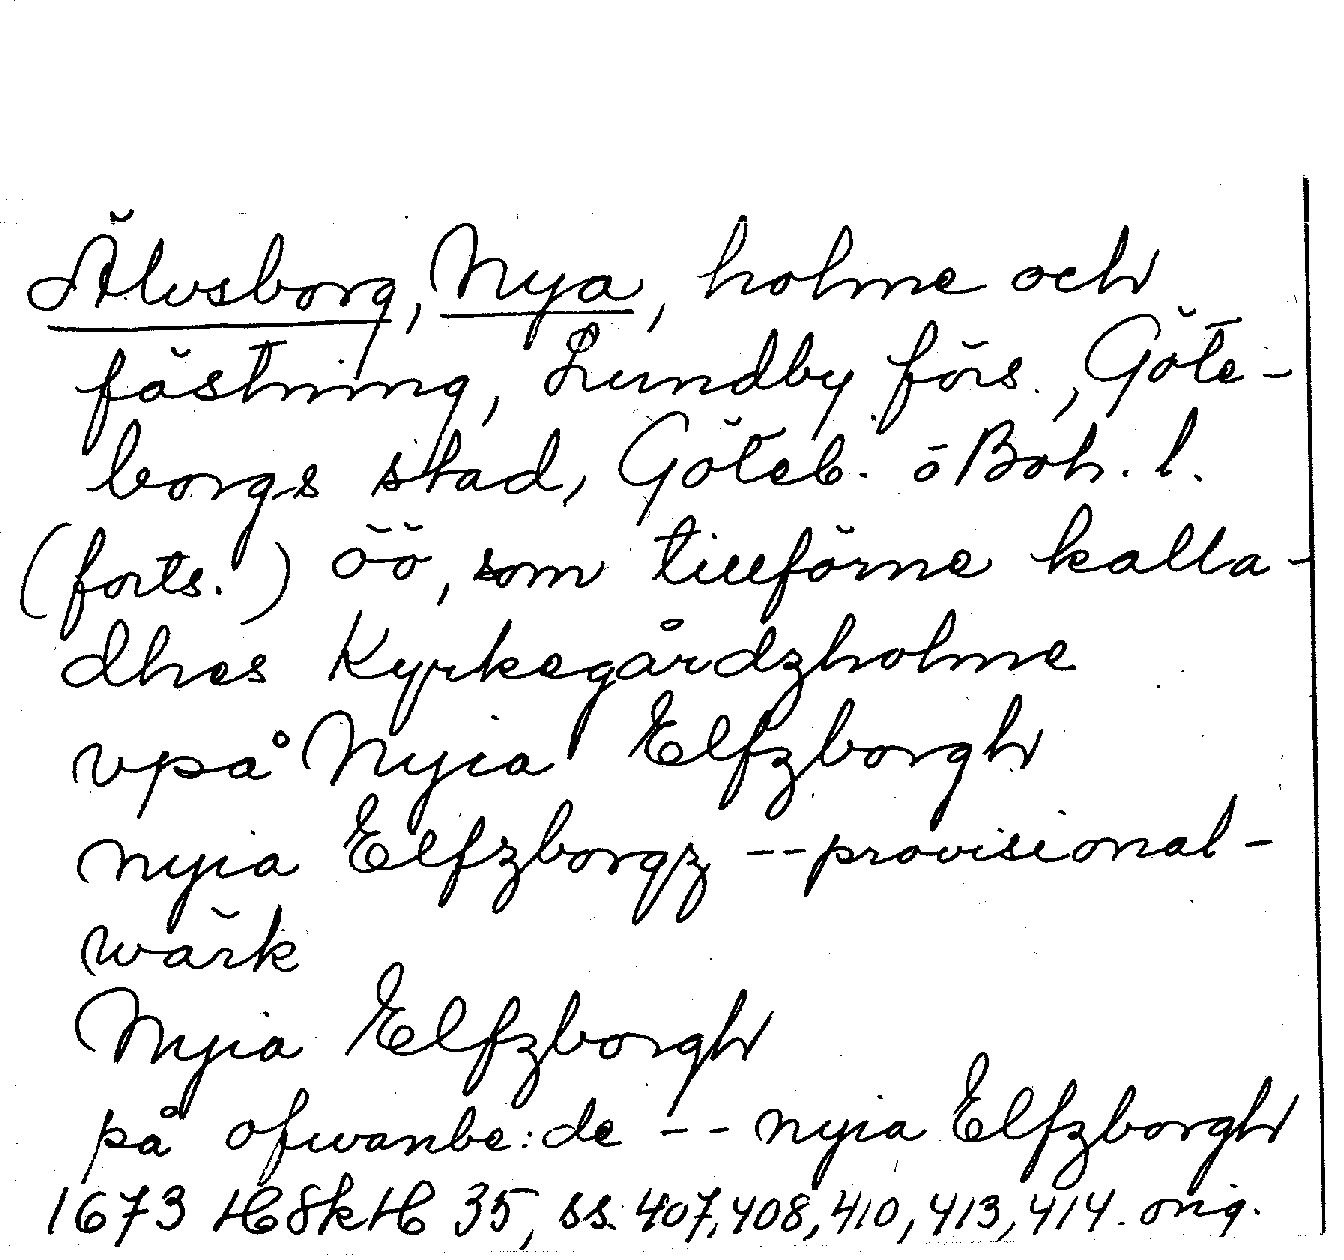 Älvsborg, Nya, holme och
fästning, Lundby förs., Göte-
borgs stad, Göteb. o Boh. l.
(forts.) öö, som tillförne kalla-
dhes Kyrkegårdzholme
vpå Nyia Elfzborgh
nyia Elfzborgz -- provisional-
wärk
Nyia Elfzborgh
på ofwanbe:de -- nyia Elfzborgh
1673 35, ss. 407, 408, 410, 413, 414. orig.